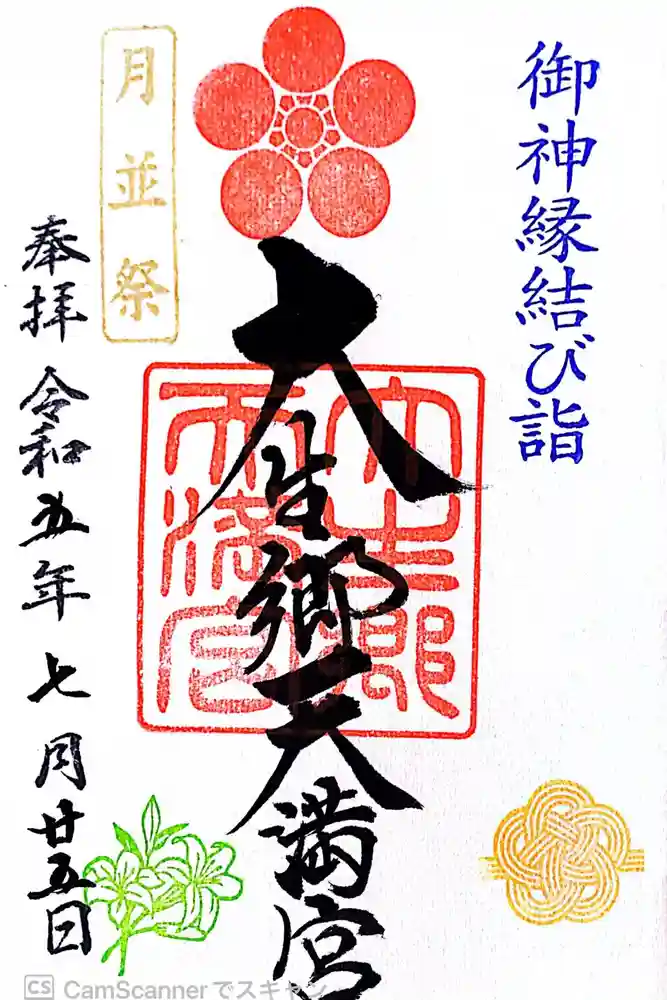 御神縁結び詣
大生郷天満宮
大生郷
天満宮
月並祭
奉拝 令和五年 七月廿五日
CS CamScannerでスキャン